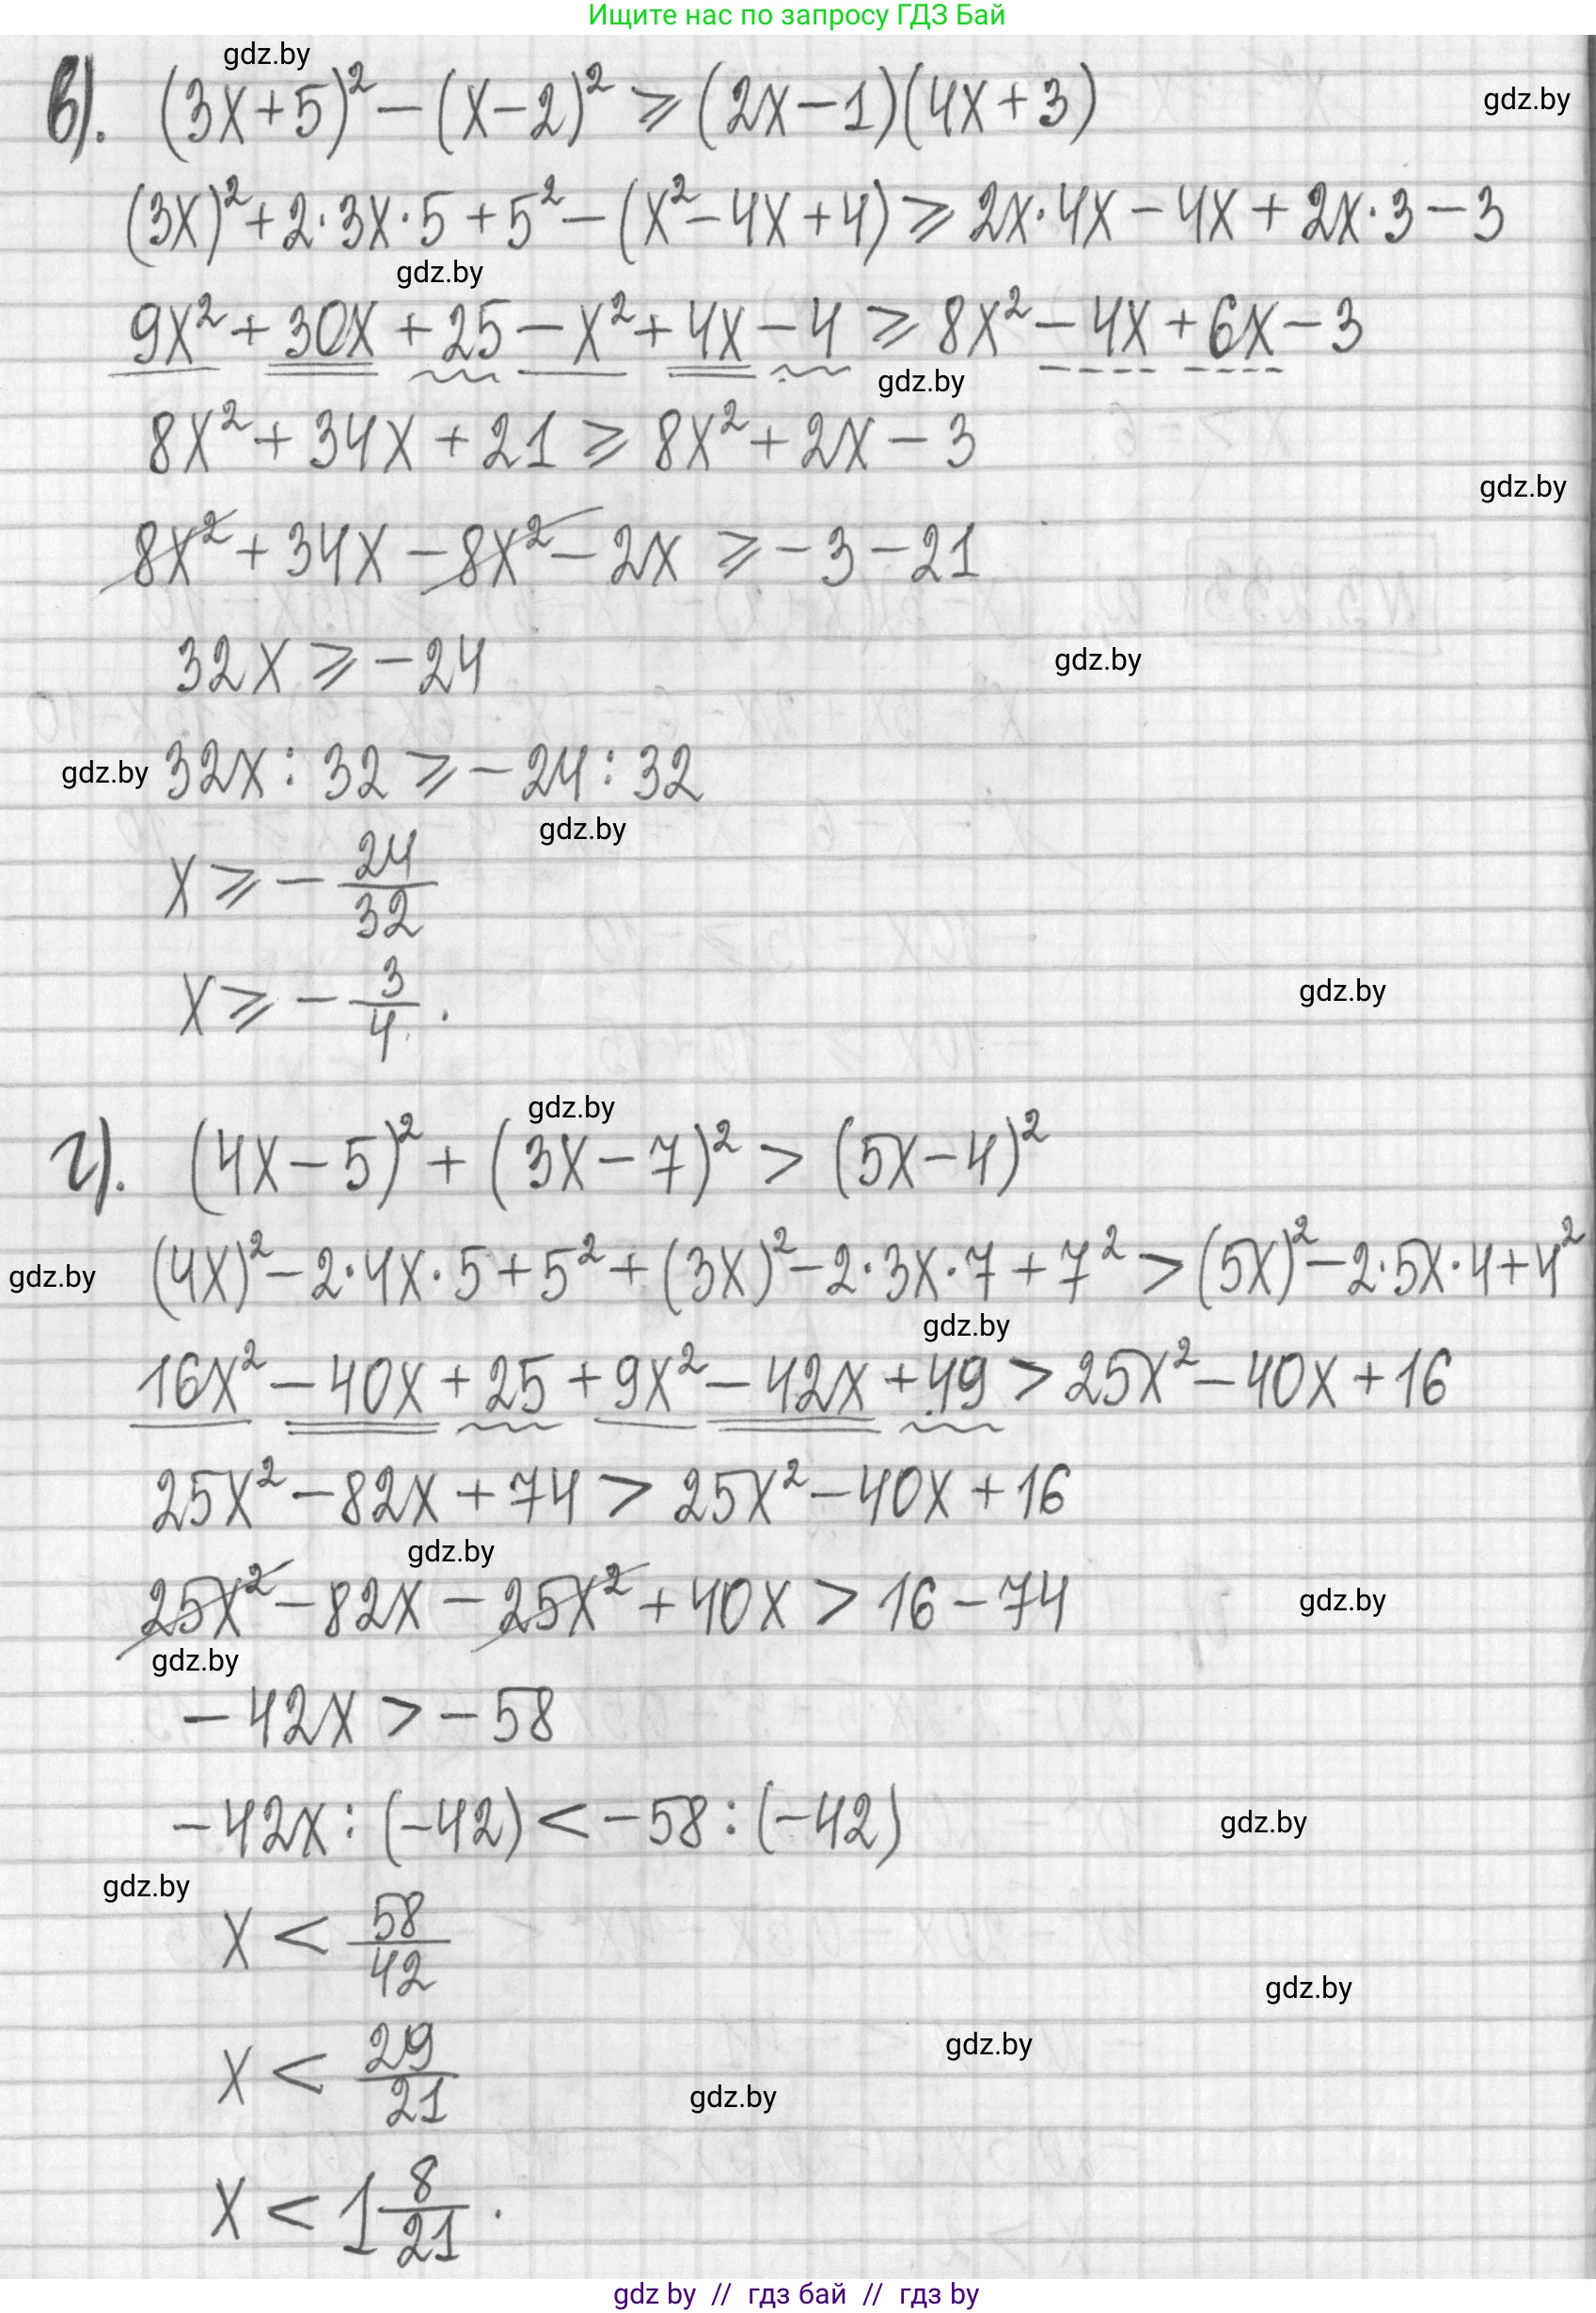 Ищите нас по запросу ГДЗ Бай
gdz.by
в). (3x+5)² − (x−2)² ⩾ (2x−1)(4x+3)
gdz.by
(3x)² + 2·3x·5 + 5² − (x² − 4x + 4) ⩾ 2x·4x − 4x + 2x·3 − 3
gdz.by
9x² + 30x + 25 − x² + 4x − 4 ⩾ 8x² − 4x + 6x − 3
gdz.by
8x² + 34x + 21 ⩾ 8x² + 2x − 3
gdz.by
8x² + 34x − 8x² − 2x ⩾ −3 − 21
32x ⩾ −24
gdz.by
gdz.by
32x : 32 ⩾ −24 : 32
gdz.by
x ⩾ − 24/32
x ⩾ − 3/4.
gdz.by
gdz.by
г). (4x−5)² + (3x−7)² > (5x−4)²
gdz.by
(4x)² − 2·4x·5 + 5² + (3x)² − 2·3x·7 + 7² > (5x)² − 2·5x·4 + 4²
gdz.by
16x² − 40x + 25 + 9x² − 42x + 49 > 25x² − 40x + 16
25x² − 82x + 74 > 25x² − 40x + 16
gdz.by
25x² − 82x − 25x² + 40x > 16 − 74
gdz.by
gdz.by
−42x > −58
−42x : (−42) < −58 : (−42)
gdz.by
gdz.by
x < 58/42
gdz.by
x < 29/21
gdz.by
gdz.by
x < 1 8/21.
gdz by // гдз бай // гдз by